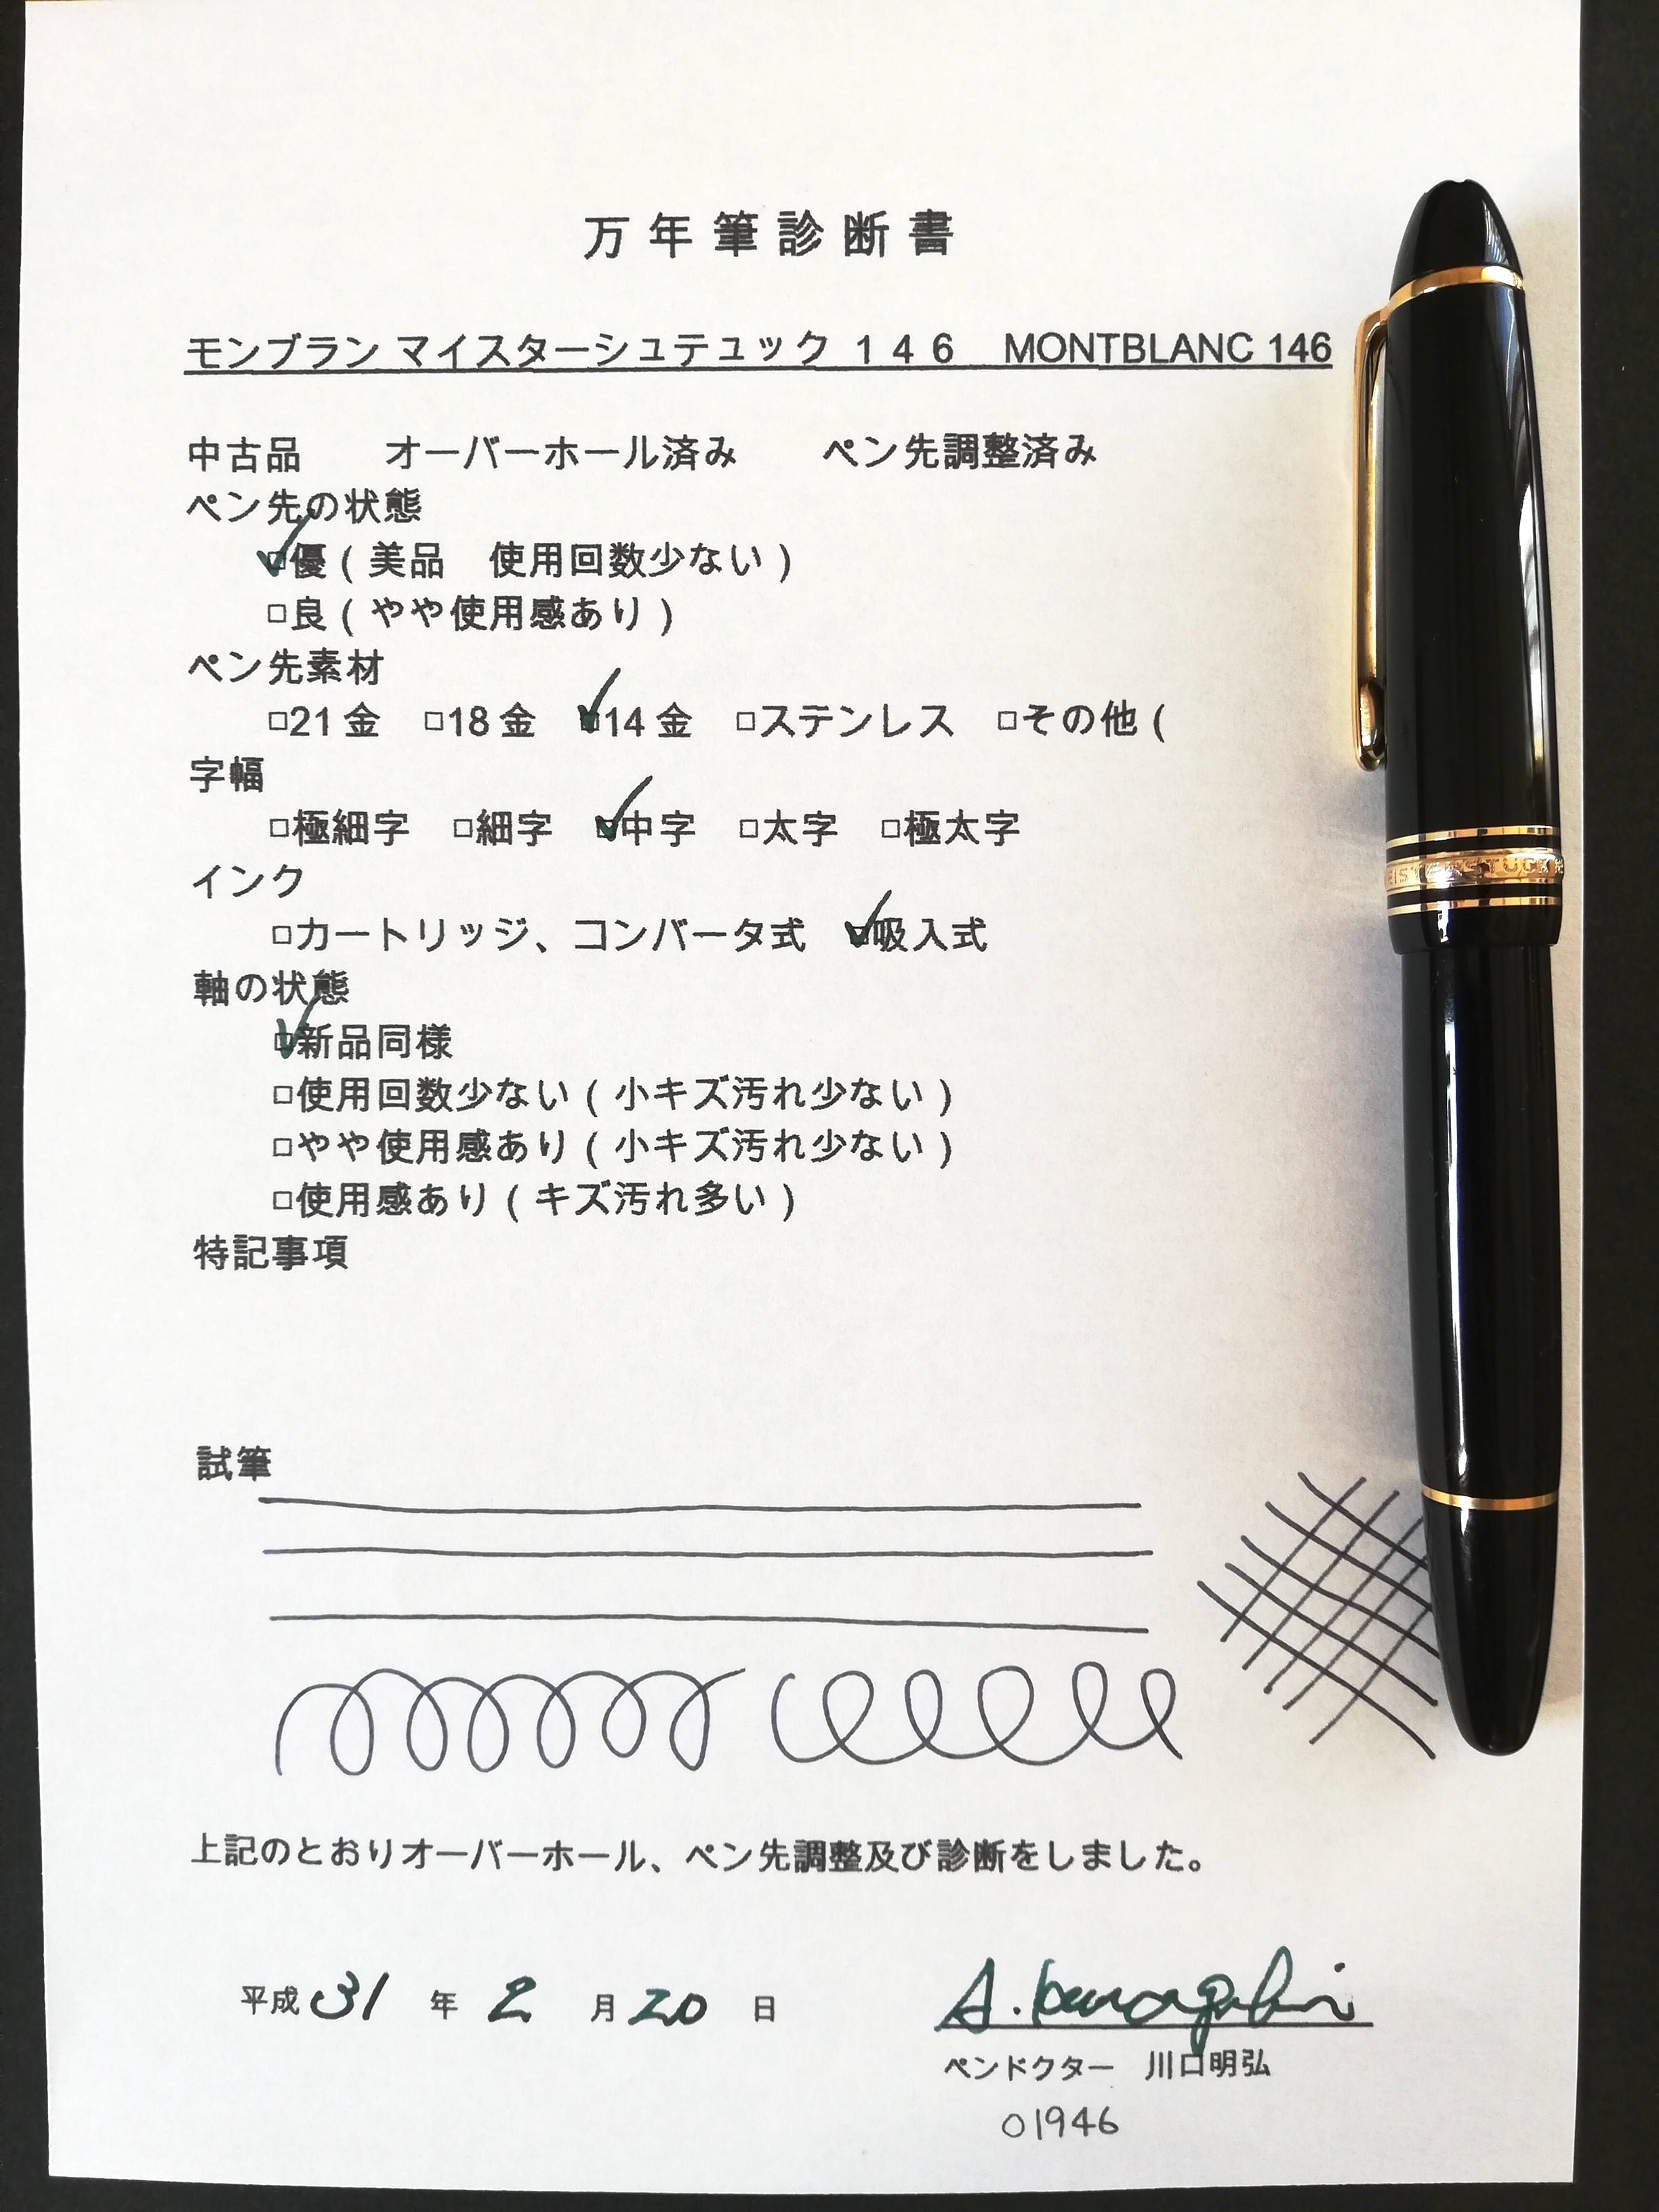 万年筆診断書
モンブラン マイスターシュテュック １４６　MONTBLANC 146
中古品　　オーバーホール済み　　ペン先調整済み
ペン先の状態
□優（美品　使用回数少ない）
□良（やや使用感あり）
ペン先素材
□21金　□18金　□14金　□ステンレス　□その他（
字幅
□極細字　□細字　□中字　□太字　□極太字
インク
□カートリッジ、コンバータ式　□吸入式
軸の状態
□新品同様
□使用回数少ない（小キズ汚れ少ない）
□やや使用感あり（小キズ汚れ少ない）
□使用感あり（キズ汚れ多い）
特記事項
試筆
上記のとおりオーバーホール、ペン先調整及び診断をしました。
平成31年2月20日
A. Kawaguchi
ペンドクター　川口明弘
01946
EISTERSTÜCK